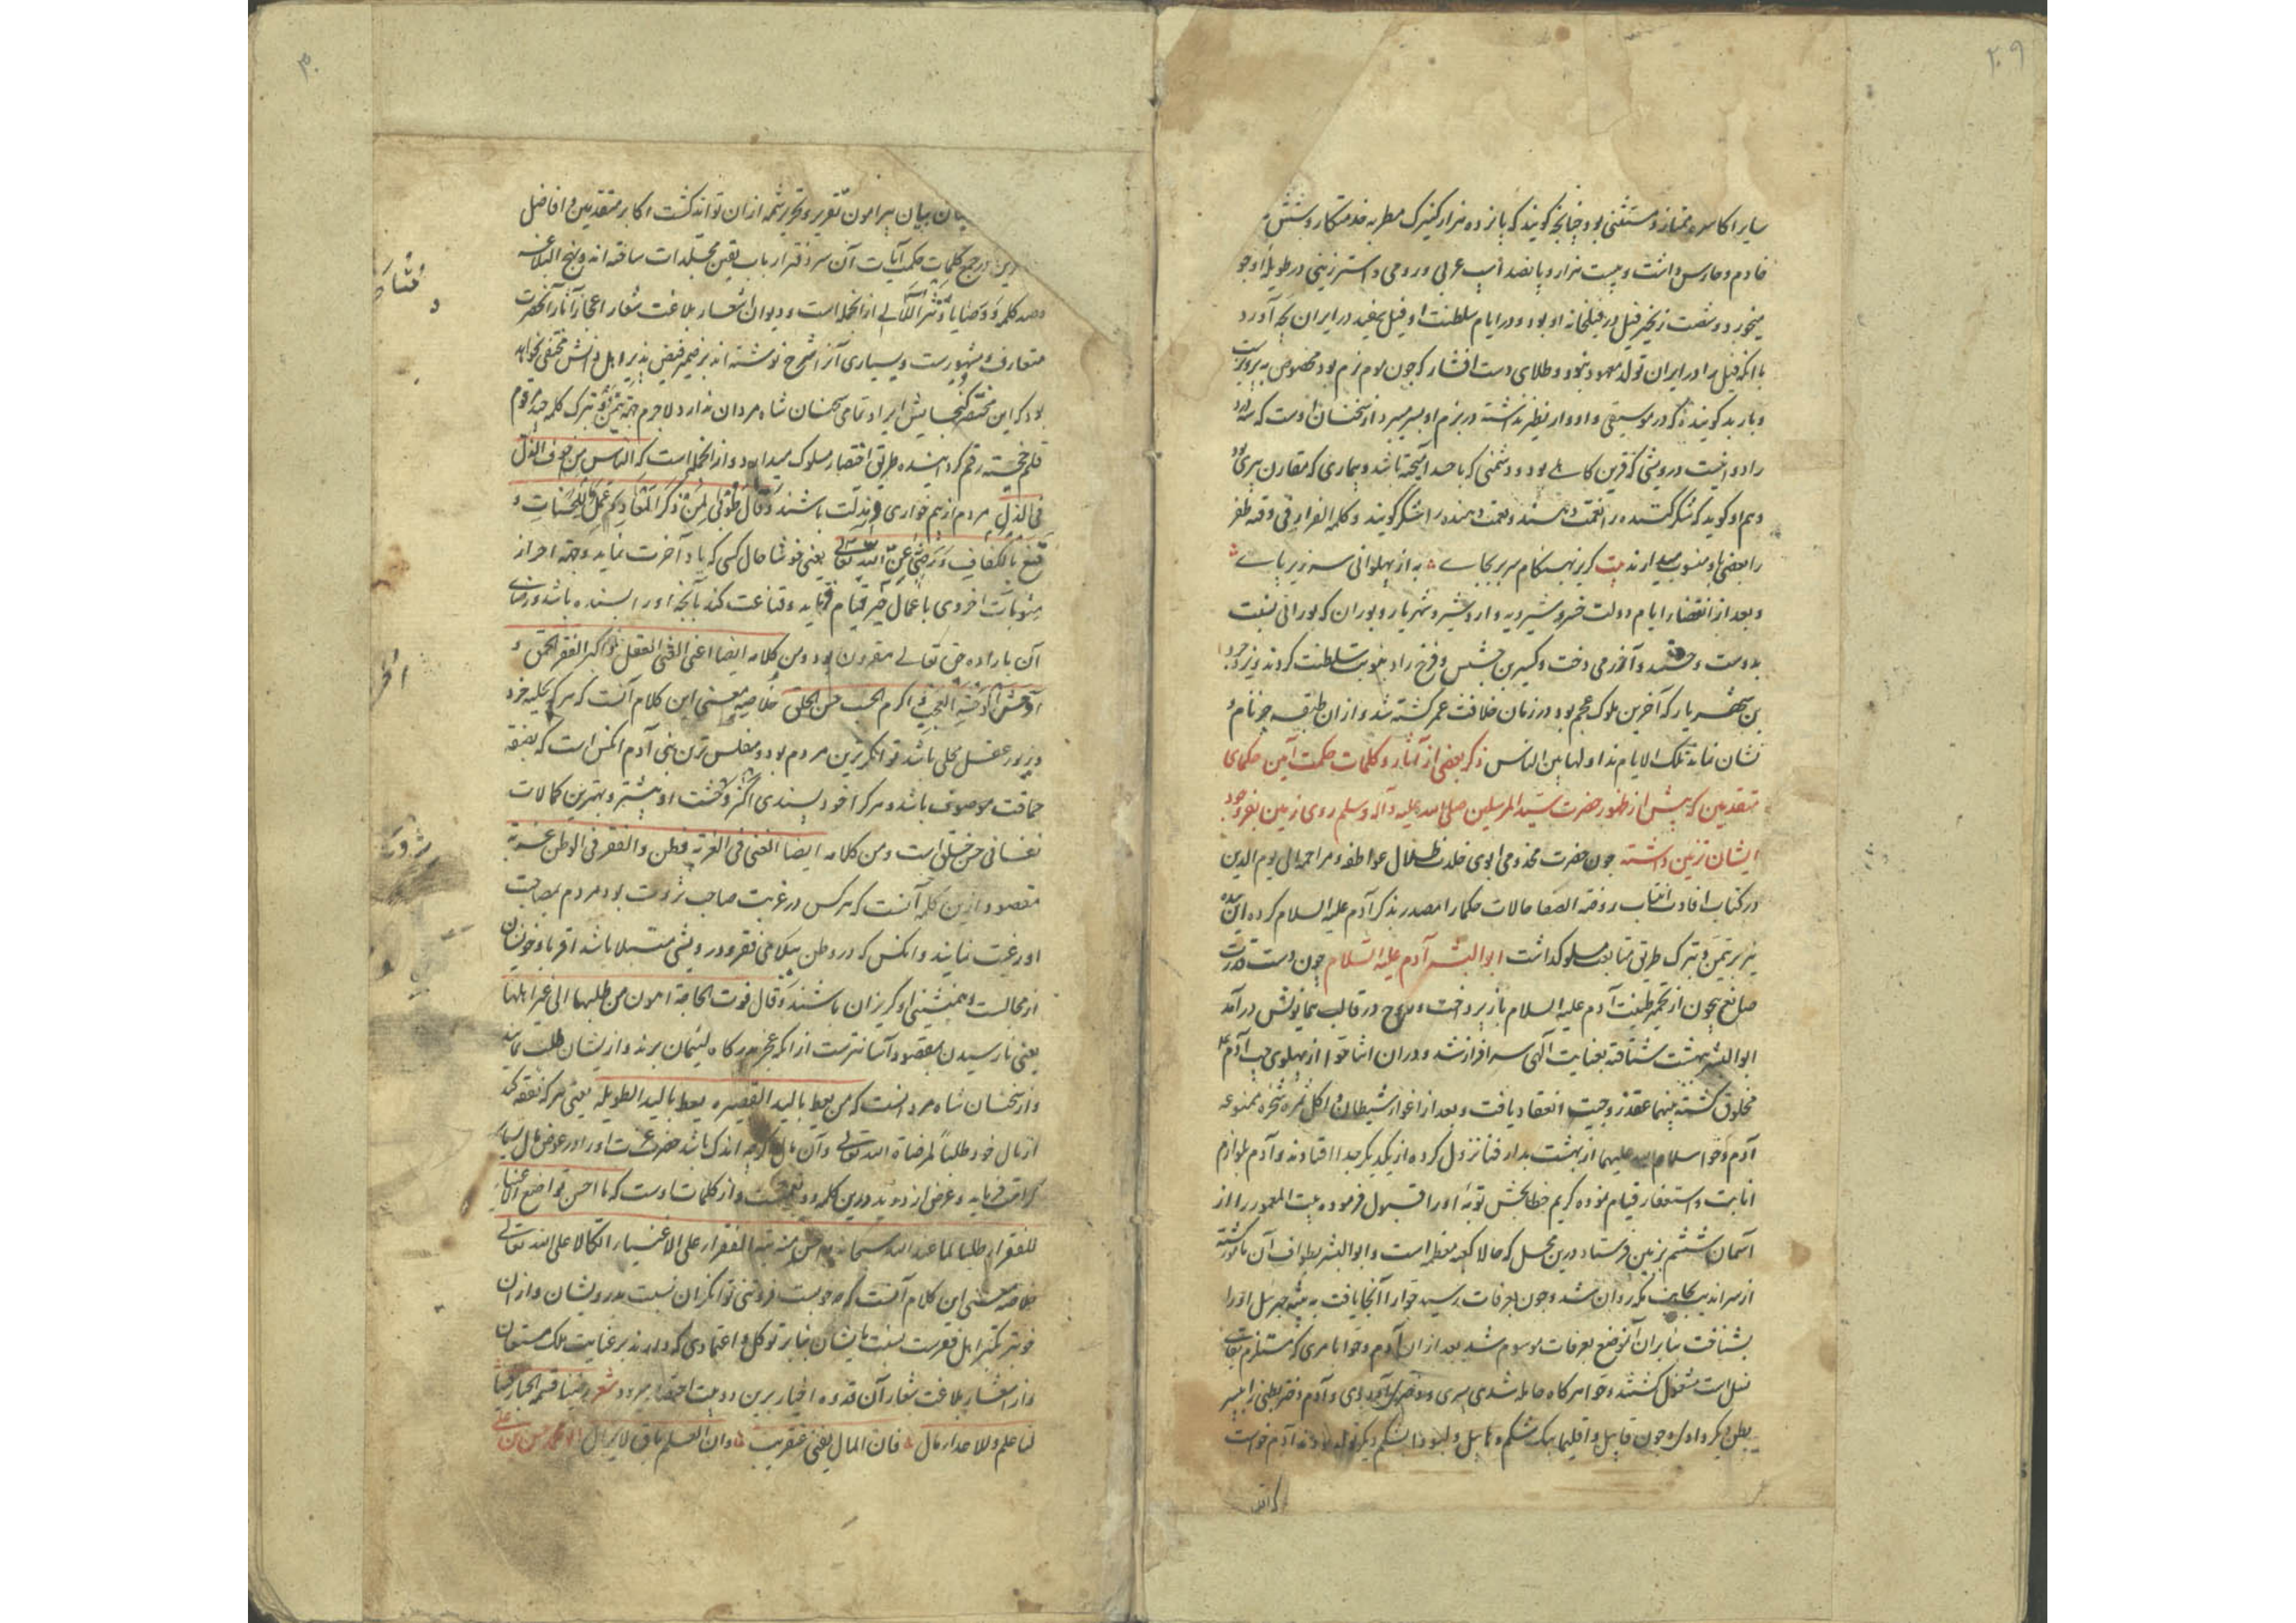 ۲۰۹
سایر اکاسره ممتاز و مستثنی بود چنانچه گویند که پانزده هزار کنیزک مطربه خدمتکار و شش
خادم و حارس داشت و بیست هزار و پانصد اسب عربی و رومی و استر زینی در طویلهٔ او جو
میخورد و شصت زنجیر فیل در فیلخانه او بود و در ایام سلطنت او فیل سفید در ایران بچه آورد
با آنکه فیل را در ایران تولد معهود نبود و طلای دست افشار که چون موم نرم بود مخصوص به پرویزست
و باربد گوینده که در موسیقی و ادوار نظیر نداشت در بزم او بسر میبرد از سخنان اوست که سه
را دوا نیست درویشی که قرین کاهلی بود و دشمنی که با حسد آمیخته باشد و بیماری که مقارن پیری بود
و هم او گوید که شکر کننده را نعمت دهند و نعمت دهنده را شکر گویند و کلمه الفرار فی وقته ظفر
را بعضی باو منسوب میدارند بیت گریز بهنگام سر بر بجای به از پهلوانی سر زیر پای
و بعد از انقضاء ایام دولت خسرو شیرویه و اردشیر و شهریار و بوران که بورانی بنسبت
بدوست و جشنده و آذرمی دخت و کسری بن جشنس و فرخ زاد بنوبت سلطنت کردند و یزدجرد
بن شهریار که آخرین ملوک عجم بود در زمان خلافت عمر کشته شد و از ان طبقه جز نام و
نشان نماند تلک الایام نداولها بین الناس ذکر بعضی از آثار و کلمات حکمت آیین حکمای
متقدمین که پیش از ظهور حضرت سید المرسلین صلی الله علیه و آله وسلم روی زمین بفر وجود
ایشان تزئین داشته چون حضرت مخدومی ابوی خلدت ظلال عواطفه و مراحمه الی یوم الدین
در کتاب افادت انتساب روضة الصفا حالات حکما را مصدر بذکر آدم علیه السلام کرده این بنده
نیز بر تیمن و تبرک طریق متابعت مسلوک داشت ابو البشر آدم علیه السلام چون دست قدرت
صانع بیچون از تخمیر طینت آدم علیه السلام باز پرداخت و روح در قالب همایونش درآمد
ابو البشر ببهشت شتافته بعنایت آلهی سرافراز شد و دران اثنا حوا از پهلوی چپ آدم
مخلوق گشته بینهما عقد زوجیت انعقاد یافت و بعد از اغواء شیطان و اکل ثمره شجره ممنوعه
آدم و حوا سلام الله علیهما از بهشت بدار فنا نزول کرده از یکدیگر جدا افتادند و آدم بلوازم
انابت و استغفار قیام نموده کریم خطابخش توبهٔ او را قبول فرموده بیت المعمور را از
آسمان ششم بزمین فرستاد درین محل که حالا کعبه معظم است و ابو البشر بطواف آن مأمور گشته
از سراندیب بجانب مکه روان شد و چون بعرفات رسید حوا را آنجا یافت
بشناخت بنابران آن موضع بعرفات موسوم شد بعد از ان آدم و حوا بامری که مستلزم بقای
نسل است مشغول گشتند و حوا هرگاه حامله شدی پسری و دختری آوردی و آدم دختر بطنی را به پسر
بطن دیگر دادی و چون قابیل و اقلیما بیک شکم و هابیل و لبودا بشکم دیگر تولد نمودند آدم خواست
که اقلیما
۳۰
بیان پیرامون تقریر و تحریر شمه از ان تواند گشت اکابر متقدمین و افاضل
در جمع کلمات حکمت آیات آن سر دفتر ارباب یقین مجلدات ساخته اند و نهج البلاغه
و صد کلمه و وصایا و نثر اللآلی از انجمله است و دیوان اشعار بلاغت شعار اعجاز آثار آنحضرت
متعارف و مشهورست و بسیاری آنرا شرح نوشته اند بر ضمیر فیض پذیر اهل دانش مختفی نخواهد
بود که این مختصر گنجایش ایراد تمامی سخنان شاه مردان ندارد لاجرم جهة تیمن و تبرک کلمه چند مرقوم
قلم خجسته رقم گردانیده طریق اختصار مسلوک میدارد و از انجمله است که الناس من خوف الذل
فی الذل مردم از بیم خواری در مذلت باشند و قال طوبی لمن ذکر المعاد و عمل للحسنات و
قنع بالکفاف و رضی عن الله تعالی یعنی خوشا حال کسی که یاد آخرت نماید و جهة احراز
مثوبات اخروی باعمال خیر قیام نماید و قناعت کند بآنچه او را بسنده باشد و رضای
آن باراده حق تعالی مقرون بود و من کلامه ایضا اغنی الغنی العقل و اکبر الفقر الحمق و
اوحش الوحشة العجب و اکرم الحسب حسن الخلق خلاصهٔ معنی این کلام آنست که هر که بحلیه خرد
و زیور عقل محلی باشد توانگرترین مردم بود و مفلس ترین بنی آدم آنکس است که بصفة
حماقت موصوف باشد و هر کرا خود پسندی اکثر وحشت او بیشتر و بهترین کمالات
نفسانی حسن خلق است و من کلامه ایضا الغنی فی الغربة وطن و الفقر فی الوطن غربة
مقصود ازین کلمه آنست که هر کس در غربت صاحب ثروت بود مردم بمصاحبت
او رغبت نمایند و آنکس که در وطن بلای فقر و درویشی مبتلا باشد اقربا و خویشان
از مجالست و همنشینی او گریزان باشند و قال فوت الحاجة اهون من طلبها الی غیر اهلها
یعنی نارسیدن بمقصود آسانترست از انکه عجز بدرگاه لئیمان برند و از ایشان طلب نمایند
و از سخنان شاه مردانست که من یعط بالید القصیرة یعط بالید الطویلة یعنی هر که نفقه کند
از مال خود طلباً لمرضاة الله تعالی و آن مال اگرچه اندک باشد حضرت عزت او را در عوض مال بسیار
کرامت فرماید و غرض از دو ید درین کلمه دو نعمتست و از کلمات اوست که ما احسن تواضع الاغنیاء
للفقراء طلبا لما عند الله سبحانه و احسن منه تیه الفقراء علی الاغنیاء اتکالا علی الله تعالی
خلاصهٔ معنی این کلام آنست که چه خوبست فروتنی توانگران نسبت بدرویشان و از ان
خوبتر تکبر اهل فقرست نسبت بایشان بنابر توکل و اعتمادی که دارند بر عنایت ملک مستعان
و از اشعار بلاغت شعار آن قدوه اخیار برین دو بیت اختصار میرود شعر رضینا قسمة الجبار فینا
لنا علم و للاعداء مال فان المال یفنی عن قریب و ان العلم باق لا یزال ابو محمد حسن بن علی